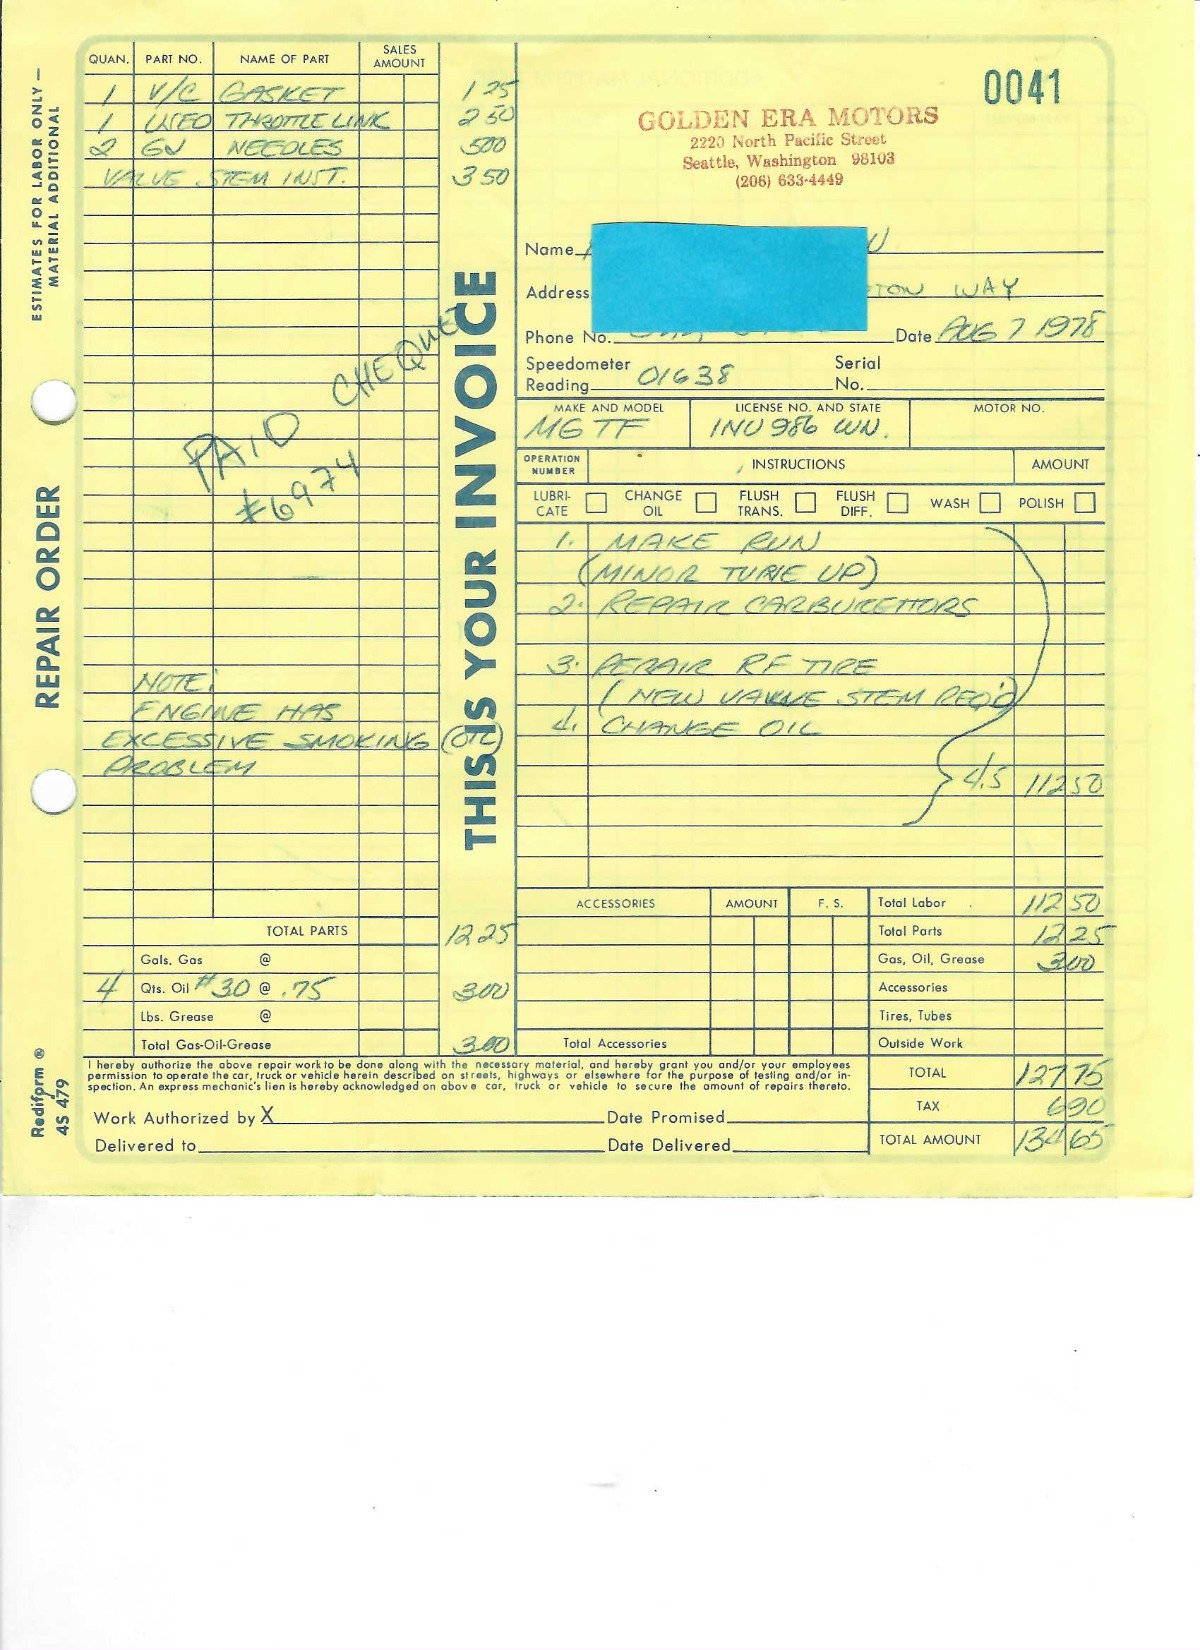 QUAN. PART NO. NAME OF PART SALES AMOUNT
1 V/C GASKET 1 25
1 USED THROTTLE LINK 2 50
2 GJ NEEDLES 500
VALVE STEM INST. 3 50
PAID CHEQUE
#6974
NOTE:
ENGINE HAS
EXCESSIVE SMOKING (OIL)
PROBLEM
TOTAL PARTS 12 25
Gals. Gas @
4 Qts. Oil #30 @ .75 300
Lbs. Grease @
Total Gas-Oil-Grease 300
ESTIMATES FOR LABOR ONLY —
MATERIAL ADDITIONAL
REPAIR ORDER
Rediform ®
4S 479
THIS IS YOUR INVOICE
0041
GOLDEN ERA MOTORS
2220 North Pacific Street
Seattle, Washington 98103
(206) 633-4449
Name
Address WAY
Phone No. Date AUG 7 1978
Speedometer Reading 01638 Serial No.
MAKE AND MODEL LICENSE NO. AND STATE MOTOR NO.
MG TF INU 986 WN.
OPERATION NUMBER INSTRUCTIONS AMOUNT
LUBRI-CATE CHANGE OIL FLUSH TRANS. FLUSH DIFF. WASH POLISH
1. MAKE RUN
(MINOR TUNE UP)
2. REPAIR CARBURETTORS
3. REPAIR RF TIRE
(NEW VALVE STEM REQ'D)
4. CHANGE OIL
4.5 112 50
ACCESSORIES AMOUNT F. S. Total Labor 112 50
Total Parts 12 25
Gas, Oil, Grease 300
Accessories
Tires, Tubes
Total Accessories Outside Work
I hereby authorize the above repair work to be done along with the necessary material, and hereby grant you and/or your employees
permission to operate the car, truck or vehicle herein described on streets, highways or elsewhere for the purpose of testing and/or in-
spection. An express mechanic's lien is hereby acknowledged on above car, truck or vehicle to secure the amount of repairs thereto.
TOTAL 127 75
Work Authorized by X Date Promised TAX 6 90
Delivered to Date Delivered TOTAL AMOUNT 134 65